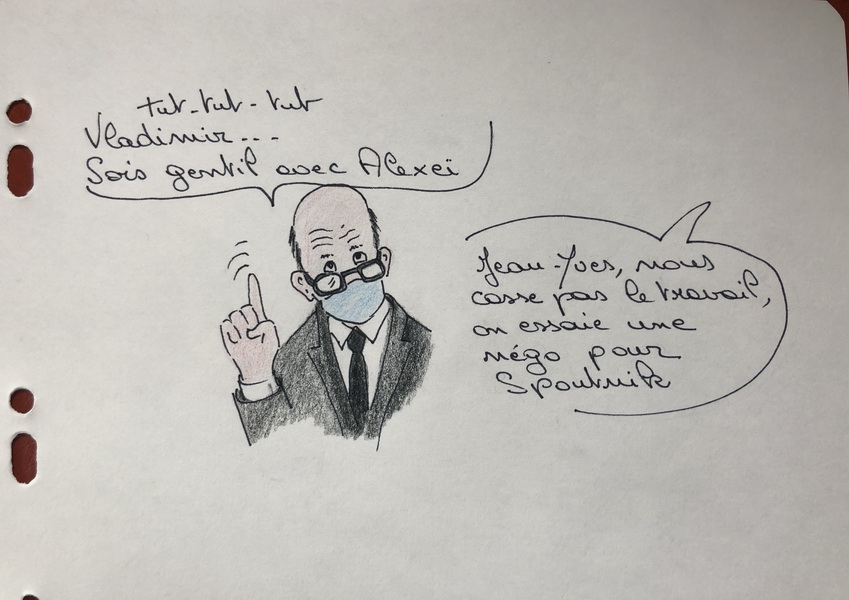 tut-tut-tut
Vladimir...
Sois gentil avec Alexeï
Jean-Yves, nous
casse pas le travail,
on essaie une
négo pour
Spoutnik